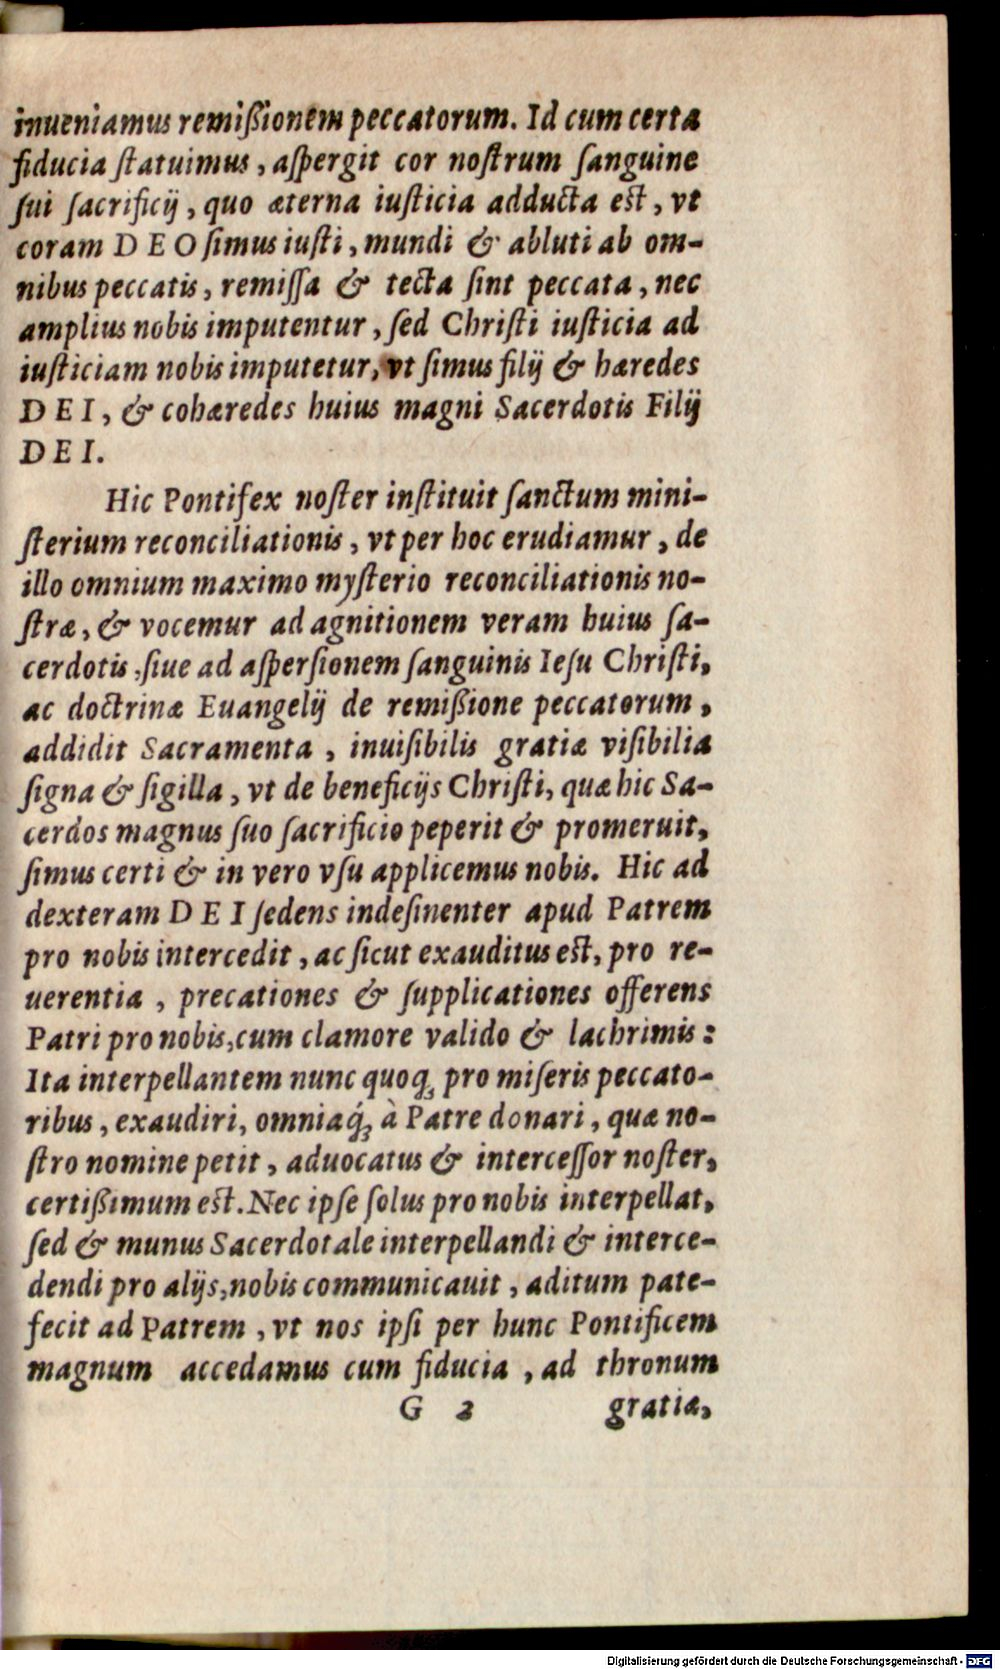 inueniamus remißionem peccatorum. Id cum certa
fiducia ſtatuimus, aſpergit cor noſtrum ſanguine
ſui ſacrificij, quo æterna iuſticia adducta eſt, vt
coram DEO ſimus iuſti, mundi & abluti ab om-
nibus peccatis, remiſſa & tecta ſint peccata, nec
amplius nobis imputentur, ſed Chriſti iuſticia ad
iuſticiam nobis imputetur, vt ſimus filij & hæredes
DEI, & cohæredes huius magni Sacerdotis Filij
DEI.
Hic Pontifex noſter inſtituit ſanctum mini-
ſterium reconciliationis, vt per hoc erudiamur, de
illo omnium maximo myſterio reconciliationis no-
ſtræ, & vocemur ad agnitionem veram huius ſa-
cerdotis, ſiue ad aſperſionem ſanguinis Ieſu Chriſti,
ac doctrinæ Euangelij de remißione peccatorum,
addidit Sacramenta, inuiſibilis gratiæ viſibilia
ſigna & ſigilla, vt de beneficijs Chriſti, quæ hic Sa-
cerdos magnus ſuo ſacrificio peperit & promeruit,
ſimus certi & in vero vſu applicemus nobis. Hic ad
dexteram DEI ſedens indeſinenter apud Patrem
pro nobis intercedit, ac ſicut exauditus eſt, pro re-
uerentia, precationes & ſupplicationes offerens
Patri pro nobis, cum clamore valido & lachrimis:
Ita interpellantem nunc quoq; pro miſeris peccato-
ribus, exaudiri, omniaq́; à Patre donari, quæ no-
ſtro nomine petit, aduocatus & interceſſor noſter,
certißimum eſt. Nec ipſe ſolus pro nobis interpellat,
ſed & munus Sacerdotale interpellandi & interce-
dendi pro alijs, nobis communicauit, aditum pate-
fecit ad Patrem, vt nos ipſi per hunc Pontificem
magnum accedamus cum fiducia, ad thronum
G 2 gratiæ,
Digitalisierung gefördert durch die Deutsche Forschungsgemeinschaft - DFG